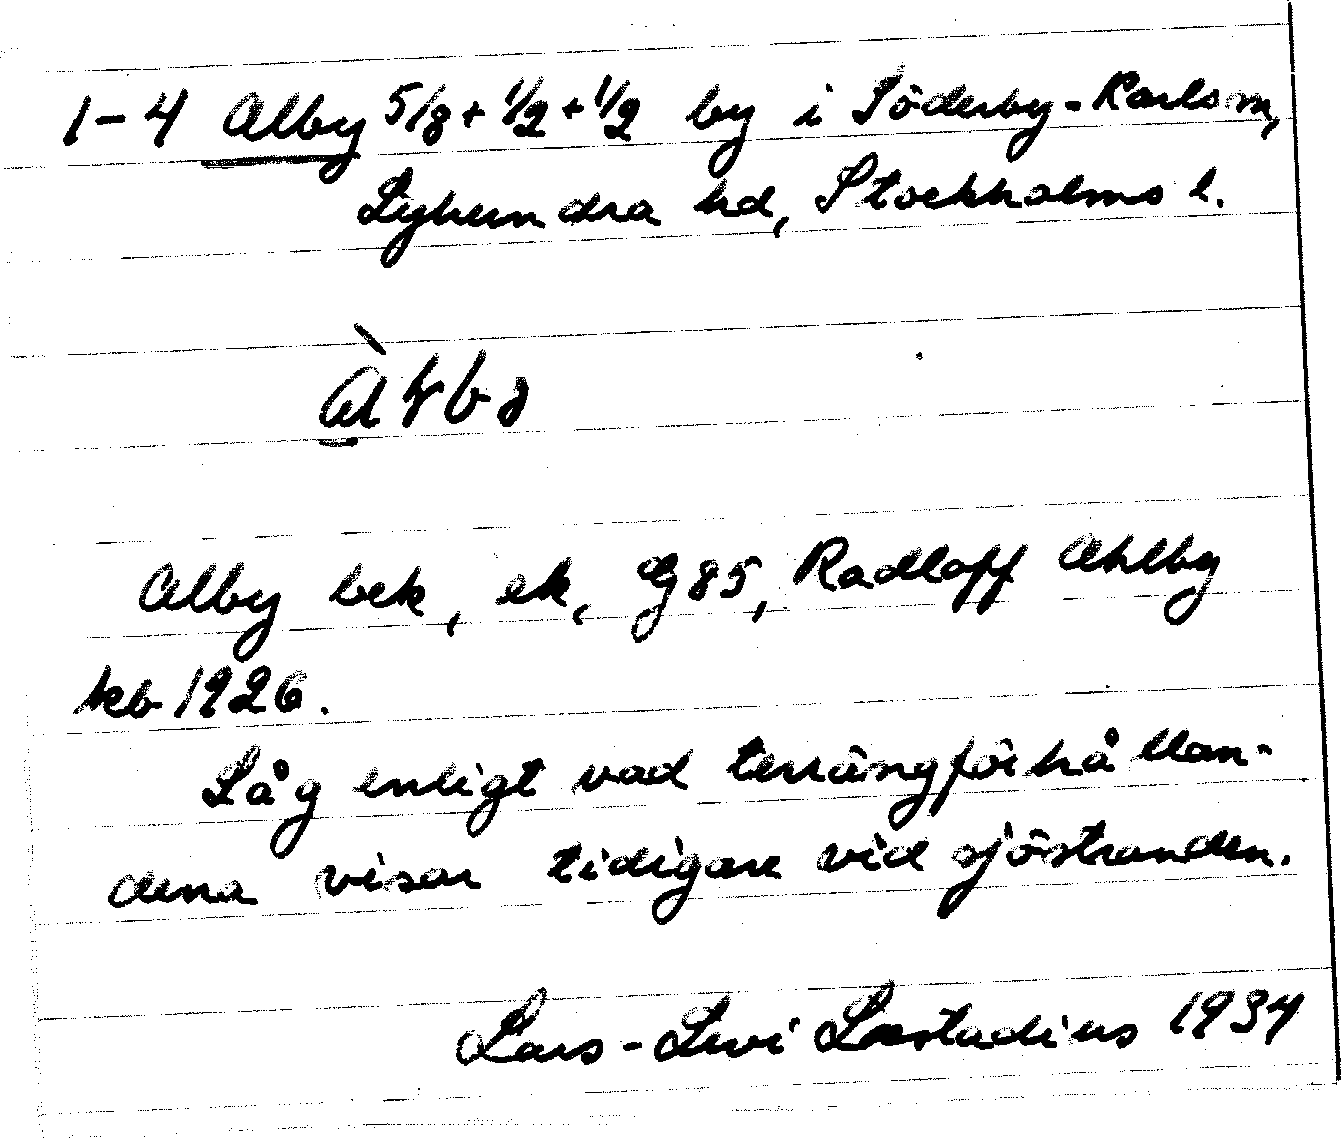 1-4 Alby 5/8 + 1/2 + 1/2 by i Söderby-Karls sn,
Lyhundra hd, Stockholms l.
Alby bek, ek, G 85, Radloff Ahlby
kb 1926.
Låg enligt vad terrängförhållan-
dena visar tidigare vid sjöstranden.
Lars-Levi Læstadius 1934